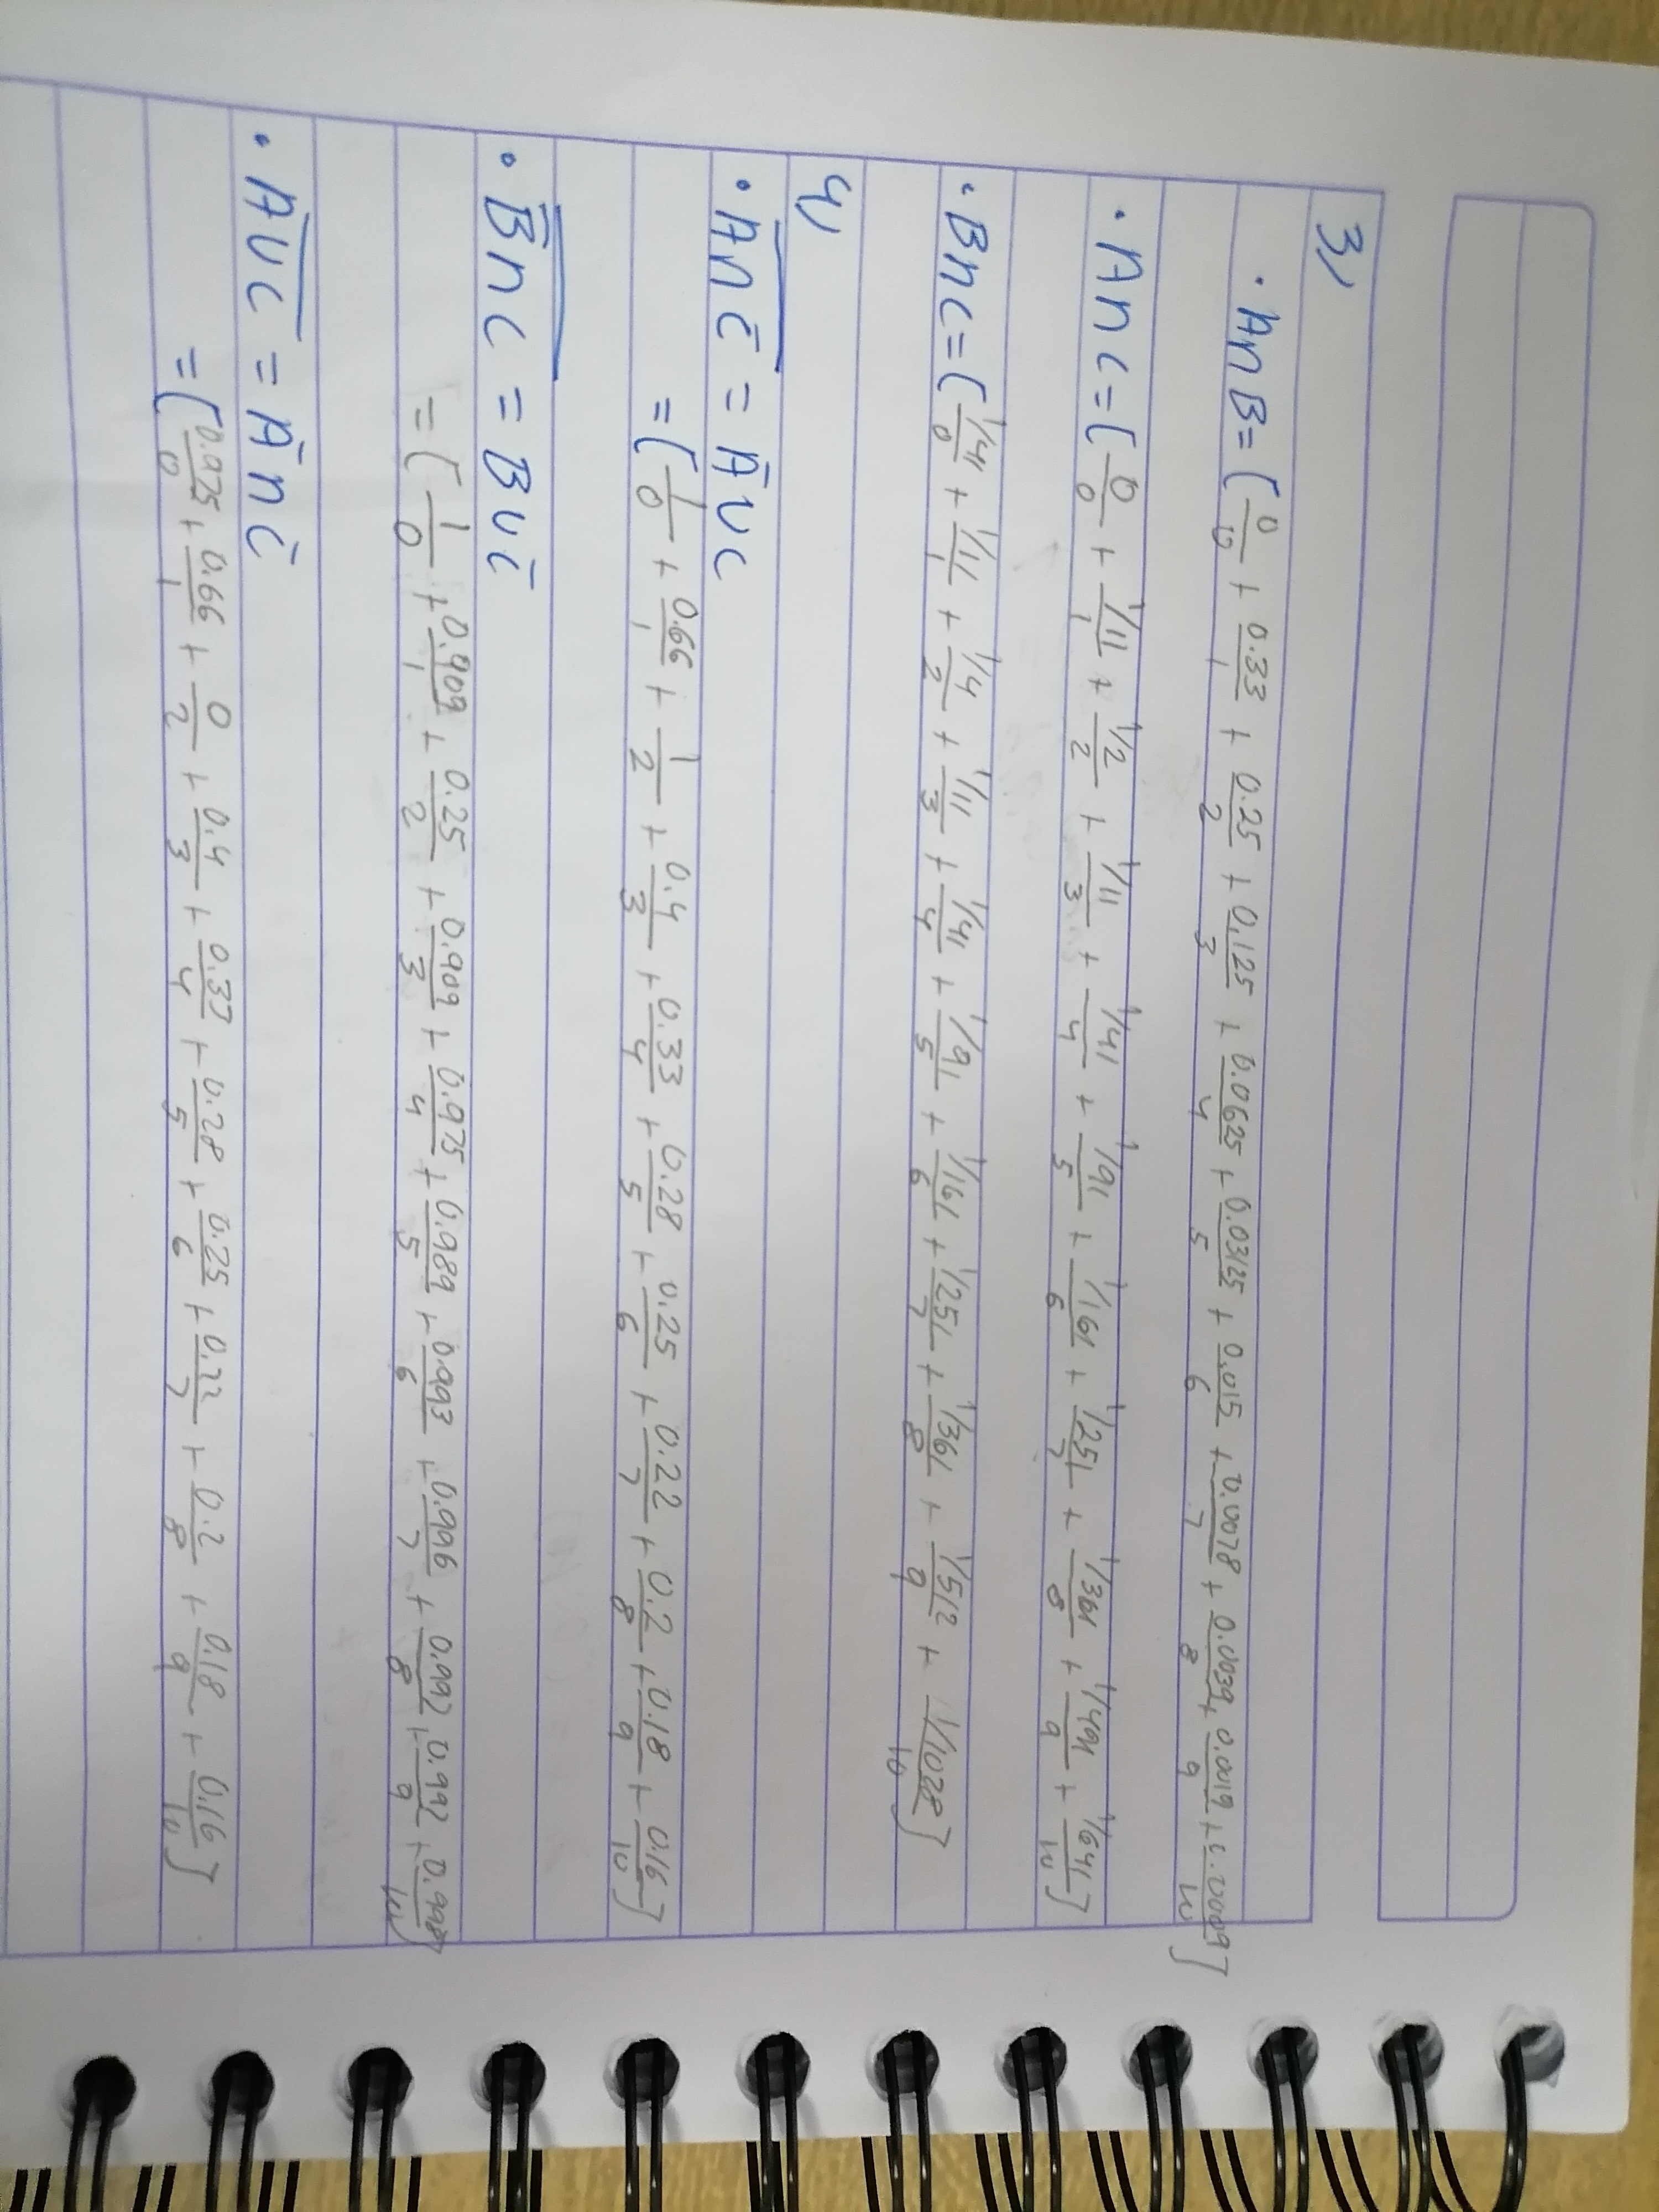 3)
· A∩B = { 0/10 + 0.33/1 + 0.25/2 + 0.125/3 + 0.0625/4 + 0.03125/5 + 0.015/6 + 0.0078/7 + 0.0039/8 + 0.0019/9 + 0.0009/10 }
· A∩C = { 0/0 + 1/11/1 + 1/2/2 + 1/11/3 + 1/41/4 + 1/91/5 + 1/161/6 + 1/251/7 + 1/361/8 + 1/491/9 + 1/641/10 }
· B∩C = { 1/41/0 + 1/11/1 + 1/4/2 + 1/11/3 + 1/41/4 + 1/91/5 + 1/161/6 + 1/251/7 + 1/361/8 + 1/512/9 + 1/1028/10 }
4)
· \overline{A∩C̄} = Ā∪C
= { 1/0 + 0.66/1 + 1/2 + 0.4/3 + 0.33/4 + 0.28/5 + 0.25/6 + 0.22/7 + 0.2/8 + 0.18/9 + 0.16/10 }
· \overline{B̄∩C} = B∪C̄
= { 1/0 + 0.909/1 + 0.25/2 + 0.909/3 + 0.975/4 + 0.989/5 + 0.993/6 + 0.996/7 + 0.992/8 + 0.992/9 + 0.998/10 }
· \overline{A∪C} = Ā∩C̄
= { 0.975/0 + 0.66/1 + 0/2 + 0.4/3 + 0.37/4 + 0.28/5 + 0.25/6 + 0.22/7 + 0.2/8 + 0.18/9 + 0.16/10 }